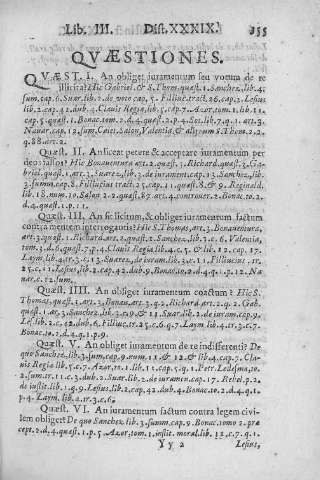 Lib. III. Dist. XXXIX. 355
QVÆSTIONES.
QVÆST. I. An obliget iuramentum seu votum de re
illicita? Hic Gabriel. & S. Thom. quæst. 1. Sanchez, lib. 4.
sum. cap. 6. Suar. lib. 2. de voto cap. Filliuc. tract. 26. cap. 2. Lesius
lib. 2. cap. 42. dub. Clauis Regia, lib. 5. cap. 7. Azor. tom. 1. lib. 11.
cap. 5. quæst. 1. Bonac. tom. 2. d. 4. quæst. 2. p. 4. Sot. lib. 7. q. 1. art. 3.
Nauar. cap. 12. sum. Caiet. Salon, Valentia, & alij cum S. Thom. 2. 2.
q. 88. art. 2.
Quæst. II. An liceat petere & acceptare iuramentum per
deos falsos? Hic Bonauentura art. 2. quæst. Richard. quæst. 3. Ga-
briel. quæst. 1. art. 3. Suarez, lib. de iurament. cap. 13. Sanchez, lib.
3. summa cap. 8. Filliucius tract. 25. cap. 11. quæst. 8. & 9. Reginald.
lib. 18. num. 10. Salon 2. 2. quæst. 87. art. 4. controuer. 2. Bonac. to. 2.
d. 4. quæst. 1. p. 11.
Quæst. III. An sit licitum, & obliget iuramentum factum
contra mentem interrogantis? Hic S. Thom. art. 3. Bonauentura,
art. 3. quæst. 1. Richard. art. 2. quæst. 2. Sanchez. c. 6. Valentia,
tom. 3. d. 6. quæst. 7. p. 4. Clauis Regia lib. 4. c. 5. & lib. 12. cap.
Laym. lib. 4. tr. 3. c. 13. Suarez, de iuram. lib. 3. c. 11. Filliucius. tr.
25. c. 11. Lesius, lib. 2. cap. 42. dub. 9. Bonac. to. 2. d. 4. q. 1. p. 12. Na-
uar. c. 12. sum.
Quæst. IIII. An obliget iuramentum coactum? Hic S.
Thomas, quæst. 1. art. 3. Bonau. art. 3. q. 2. Richard. art. 2. q. 2. Gab.
quæst. 1. art. 3. Sanchez lib. 3. c. 9. & 11. Suar. lib. 2. de iuram. cap. 9.
Les. lib. 2. c. 42. dub. 6. Filiuc. tr. 25. c. 6. q. 7. Laym lib. 4. tr. 3. c. 7.
Bonac. to. 2. d. 4. q. 1. p. 9.
Quæst. V. An obliget iuramentum de re indifferenti? De
quo Sanchez, lib. 3. sum. cap. 9. num. 11. & 12. & lib. 4. cap. 7. Cla-
uis Regia lib. 5. c. 7. Azor to. 1. lib. 11. cap. 5. q. 1. Petr. Ledesma, to.
2. sum. tr. 3. dub. 2. Suar. lib. 2. de iuram. cap. 17. Rebel. p. 2.
de iustit. lib. 1. q. 9. Lesius, lib. 2. cap. 42. dub. 4. Bonac. to. 2. d. 4. q. 1.
p. 4. Laym. lib. 4. tr. 3. c. 6.
Quæst. VI. An iuramentum factum contra legem civi-
lem obliget? De quo Sanchez, lib. 3. sum. cap. 9. Bonac. tomo 2. præ
cept. 2. d. 4. quæst. 1. p. 5. Azor. tom. 1. instit. moral. lib. 11. c. 7. q. 1.
Yy 2 Lesius,